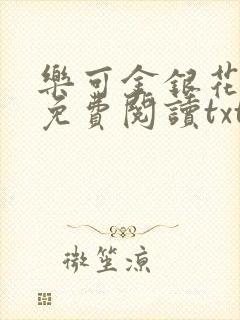 樂可金銀花
免費閱讀txt
微笙涼